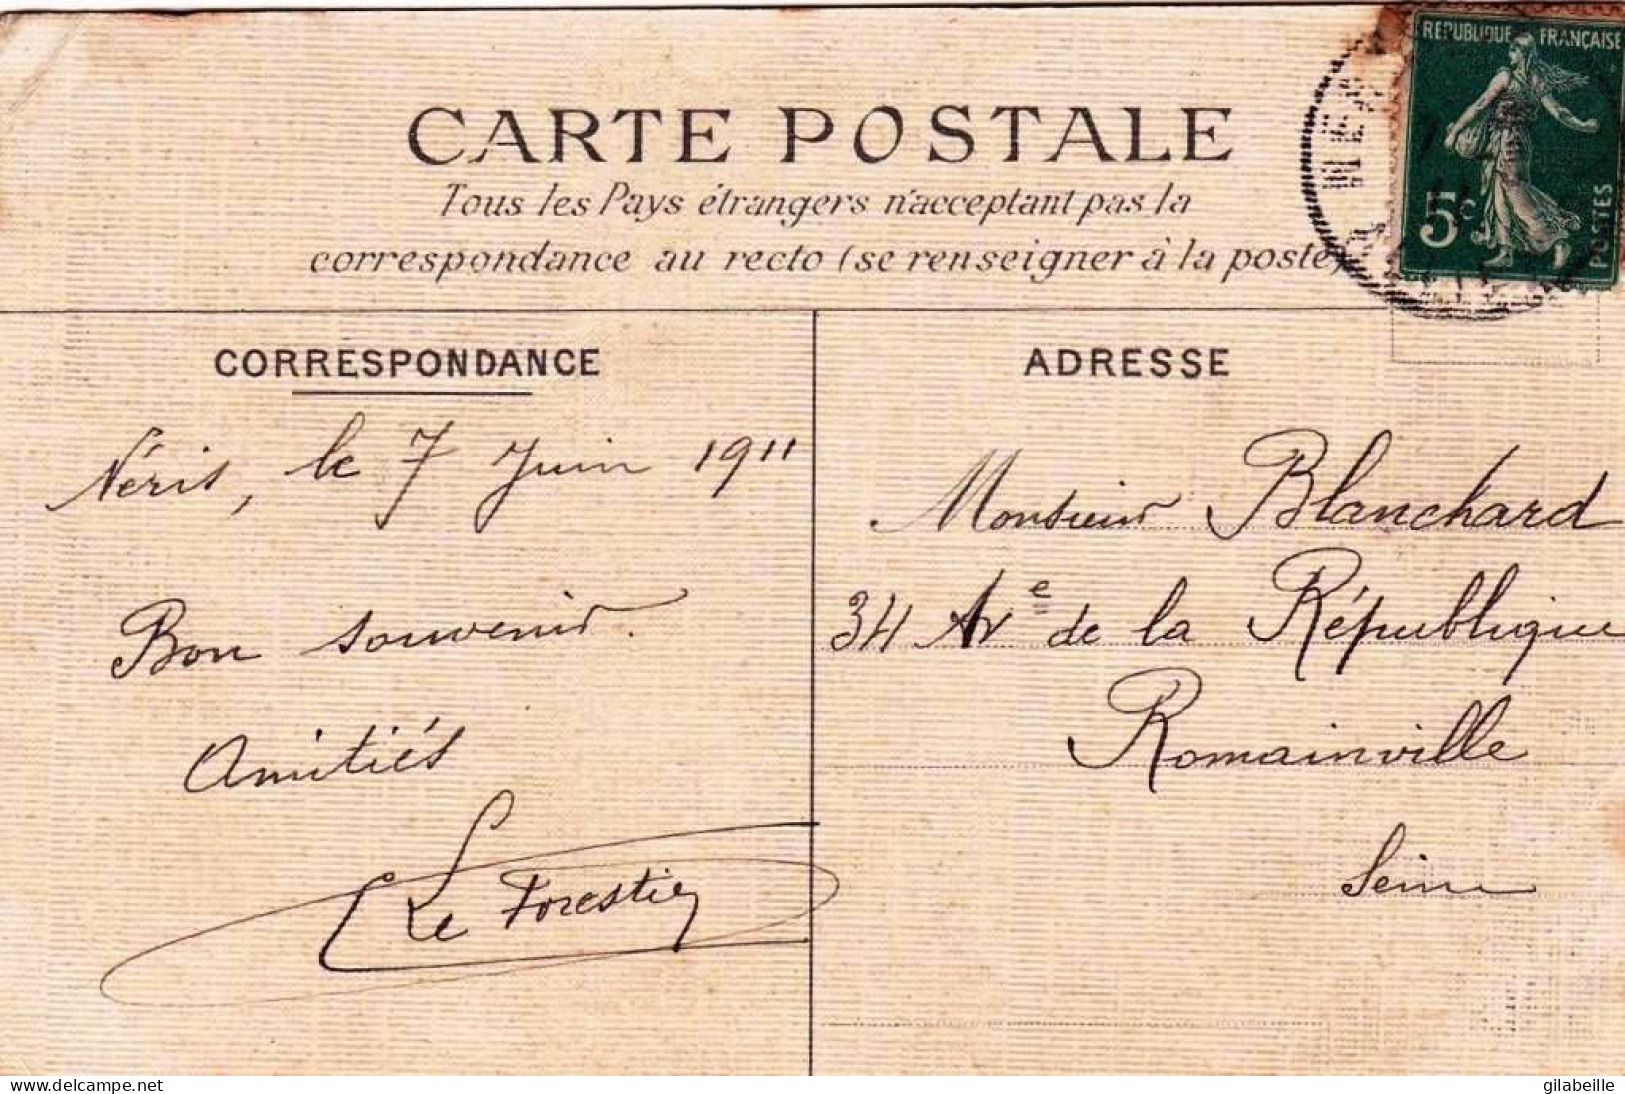 CARTE POSTALE
Tous les Pays étrangers n'acceptant pas la
correspondance au recto (se renseigner à la poste)
REPUBLIQUE FRANÇAISE
5c
POSTES
CORRESPONDANCE
Néris, le 7 Juin 1911
Bon souvenir.
Amitiés
Le Forestier
ADRESSE
Monsieur Blanchard
34 Ave de la République
Romainville
Seine
delcampe.net
gilabeille